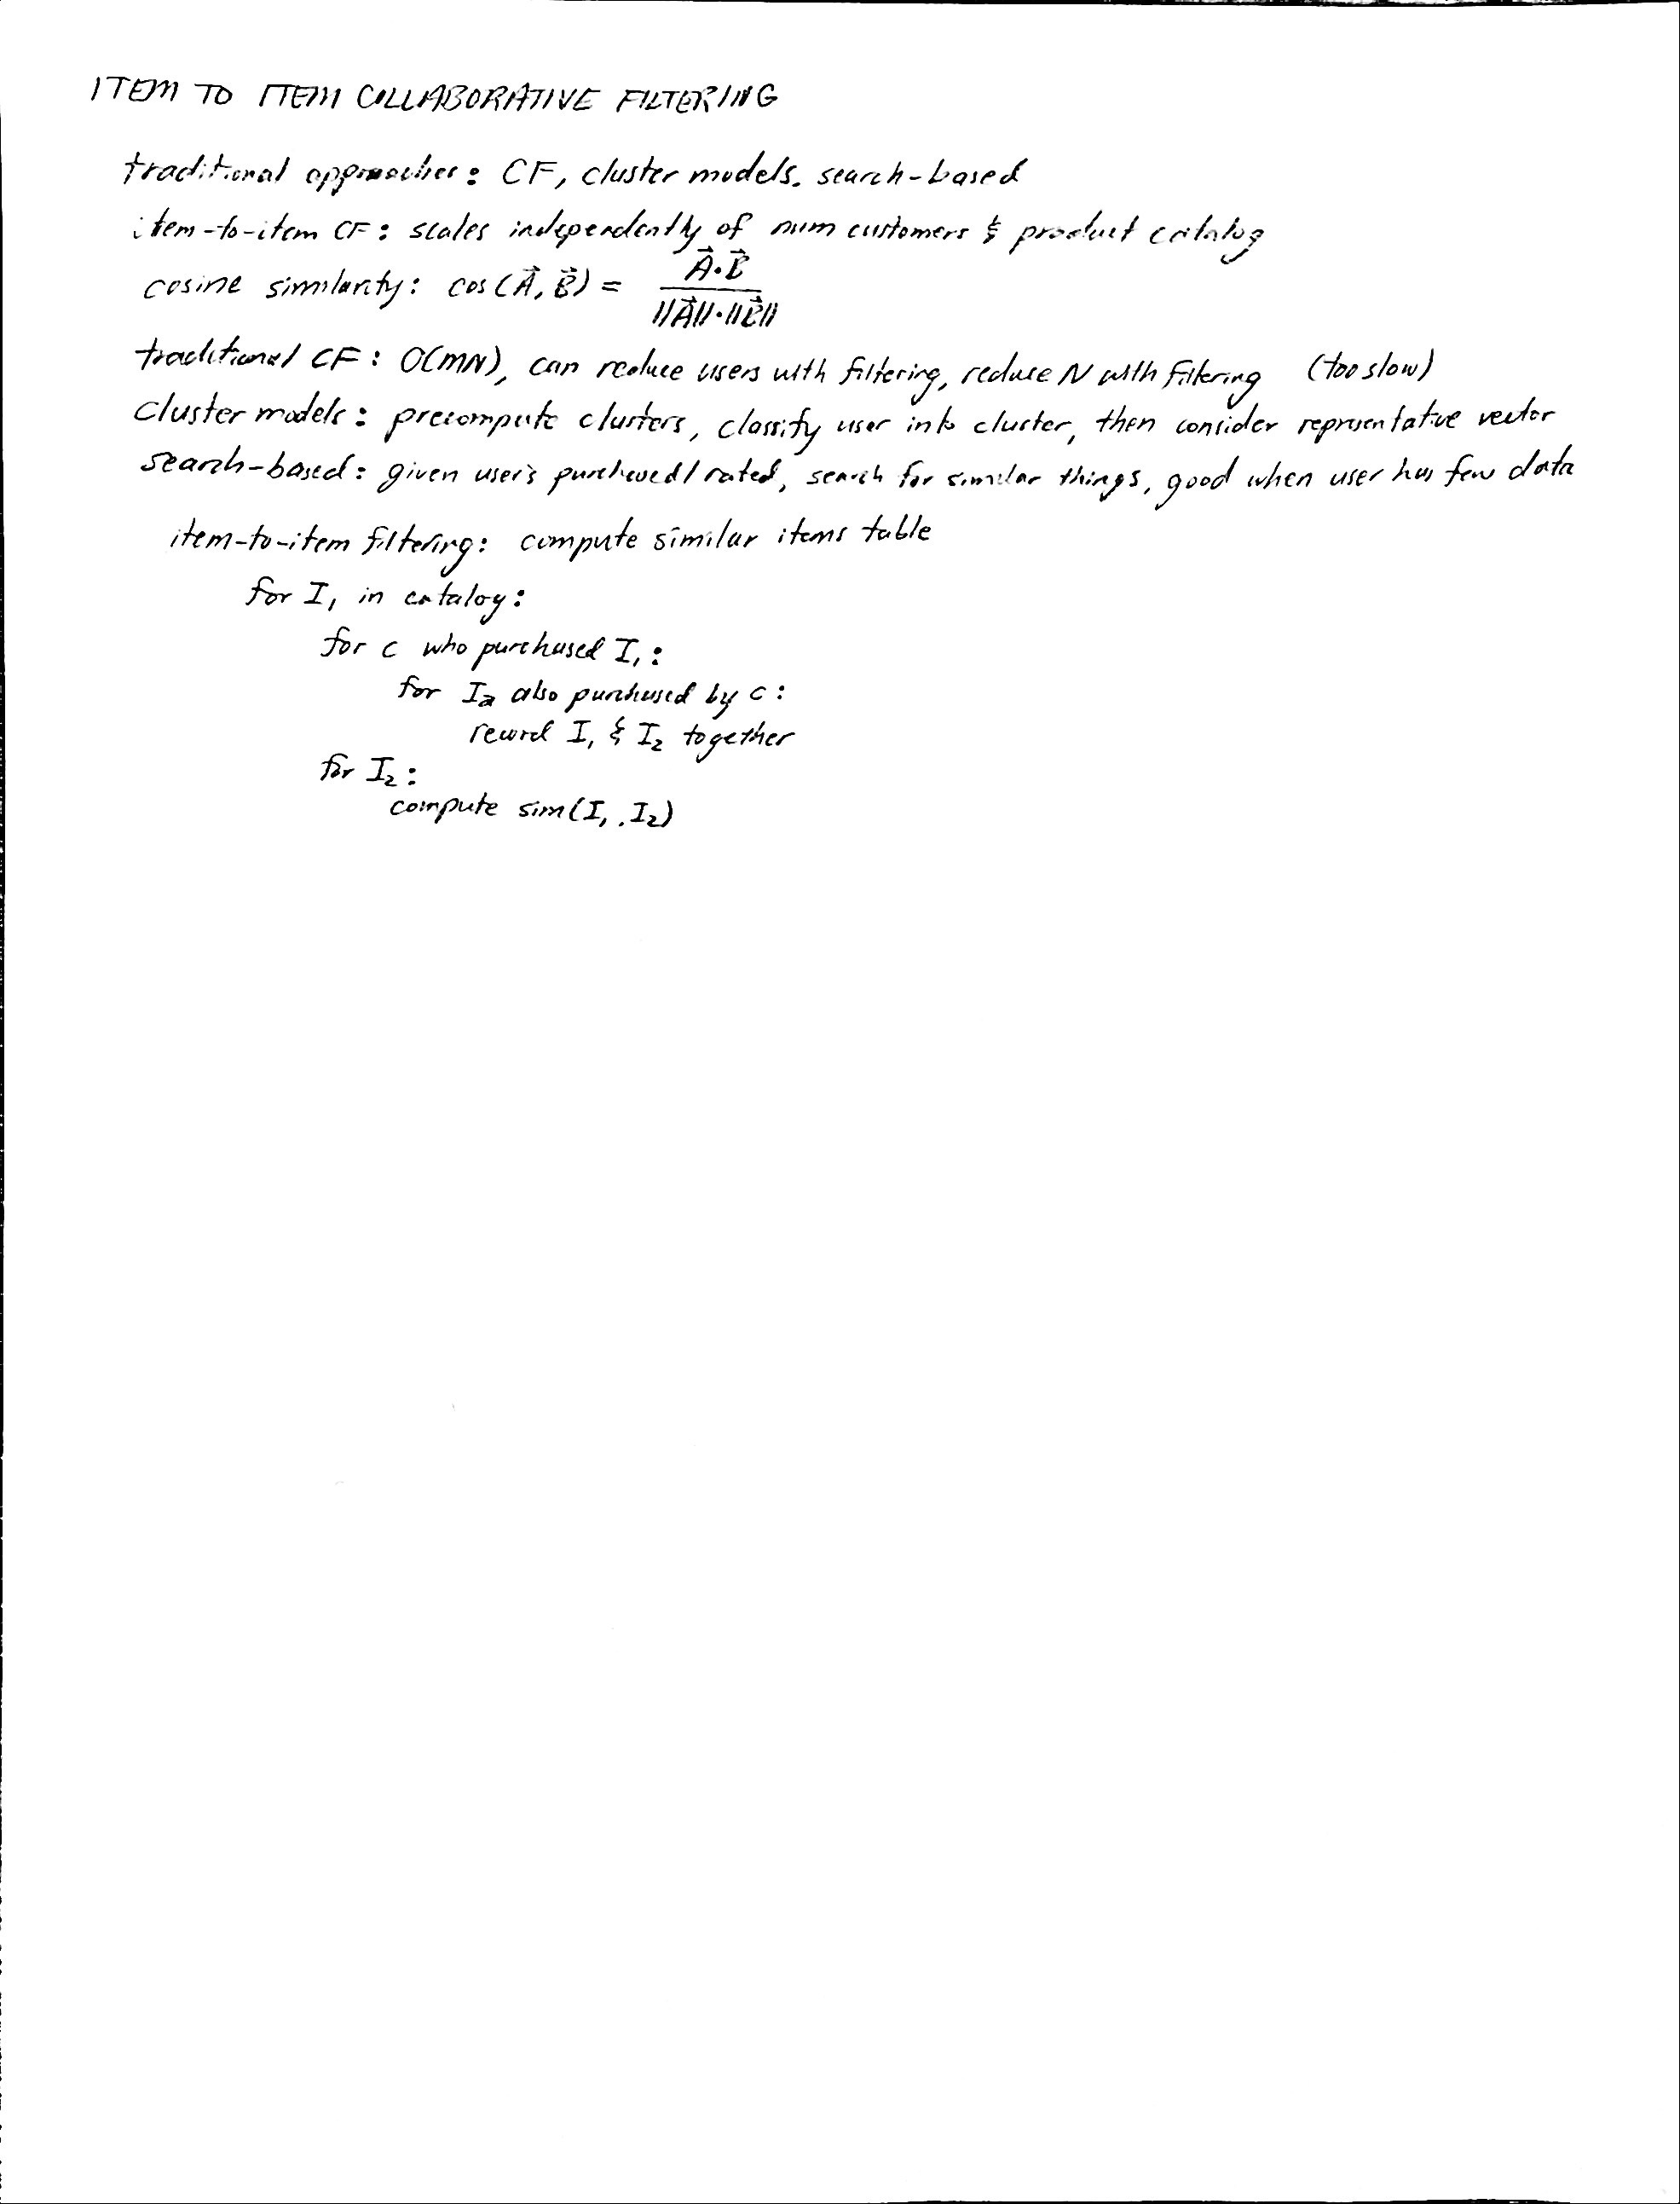 ITEM TO ITEM COLLABORATIVE FILTERING
traditional approaches: CF, cluster models, search-based
item-to-item CF: scales independently of num customers & product catalog
cosine similarity: cos(A⃗, B⃗) = A⃗·B⃗ / ||A⃗||·||B⃗||
traditional CF: O(MN), can reduce users with filtering, reduce N with filtering (too slow)
cluster models: precompute clusters, classify user into cluster, then consider representative vector
search-based: given user's purchased/rated, search for similar things, good when user has few data
item-to-item filtering: compute similar items table
for I₁ in catalog:
for c who purchased I₁:
for I₂ also purchased by c:
record I₁ & I₂ together
for I₂:
compute sim(I₁, I₂)